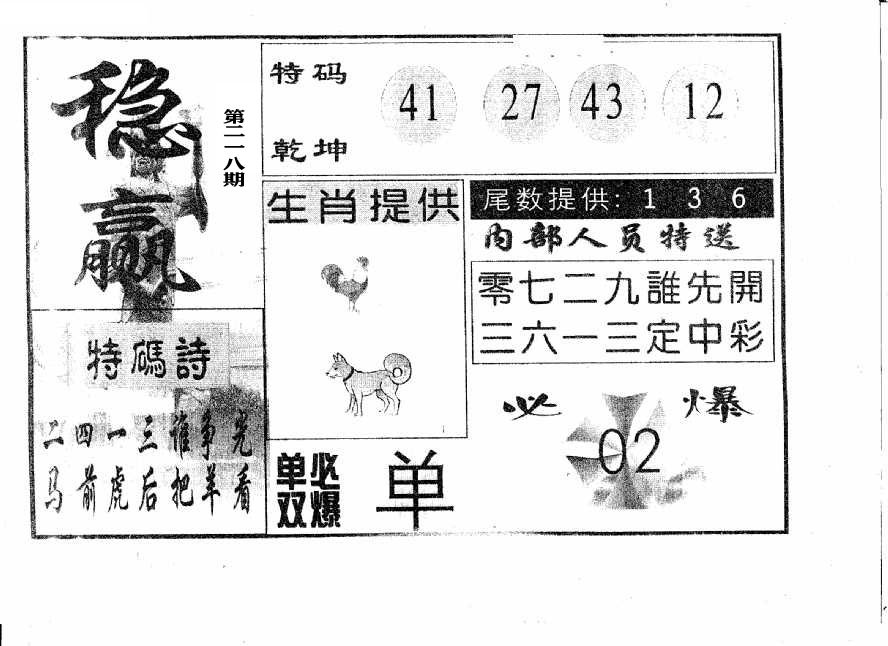 稳赢
第二一八期
特码
乾坤
41 27 43 12
生肖提供
尾数提供: 1 3 6
内部人员特送
零七二九誰先開
三六一三定中彩
特碼詩
二四一三谁争光
马前虎后把羊看
单双必爆
单
必爆
02